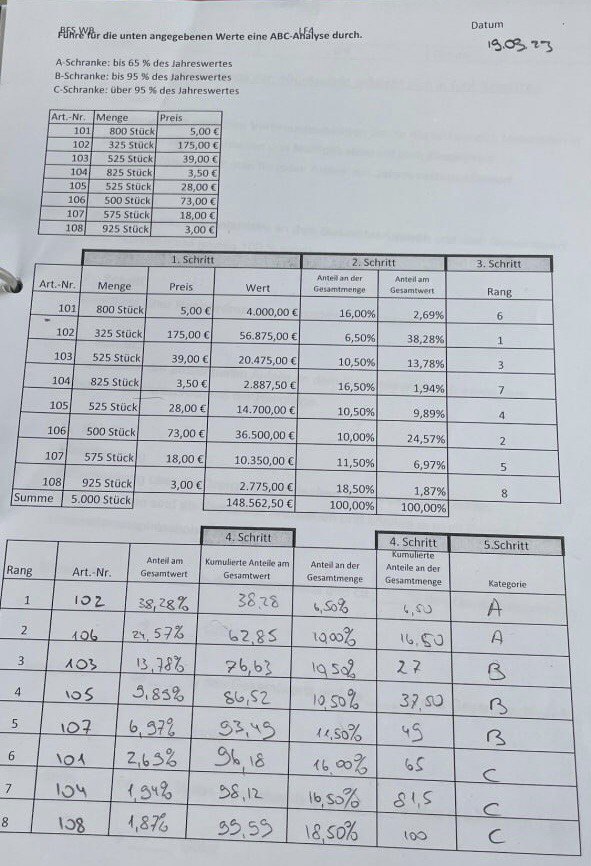 BFS WB LF4
Führe für die unten angegebenen Werte eine ABC-Analyse durch.
Datum
19.03.23
A-Schranke: bis 65 % des Jahreswertes
B-Schranke: bis 95 % des Jahreswertes
C-Schranke: über 95 % des Jahreswertes
Art.-Nr. Menge Preis
101 800 Stück 5,00 €
102 325 Stück 175,00 €
103 525 Stück 39,00 €
104 825 Stück 3,50 €
105 525 Stück 28,00 €
106 500 Stück 73,00 €
107 575 Stück 18,00 €
108 925 Stück 3,00 €
1. Schritt 2. Schritt 3. Schritt
Art.-Nr. Menge Preis Wert Anteil an der Gesamtmenge Anteil am Gesamtwert Rang
101 800 Stück 5,00 € 4.000,00 € 16,00% 2,69% 6
102 325 Stück 175,00 € 56.875,00 € 6,50% 38,28% 1
103 525 Stück 39,00 € 20.475,00 € 10,50% 13,78% 3
104 825 Stück 3,50 € 2.887,50 € 16,50% 1,94% 7
105 525 Stück 28,00 € 14.700,00 € 10,50% 9,89% 4
106 500 Stück 73,00 € 36.500,00 € 10,00% 24,57% 2
107 575 Stück 18,00 € 10.350,00 € 11,50% 6,97% 5
108 925 Stück 3,00 € 2.775,00 € 18,50% 1,87% 8
Summe 5.000 Stück 148.562,50 € 100,00% 100,00%
4. Schritt 4. Schritt 5.Schritt
Rang Art.-Nr. Anteil am Gesamtwert Kumulierte Anteile am Gesamtwert Anteil an der Gesamtmenge Kumulierte Anteile an der Gesamtmenge Kategorie
1 102 38,28% 38,28 6,50% 6,50 A
2 106 24,57% 62,85 10,00% 16.50 A
3 103 13,78% 76,63 10,50% 27 B
4 105 9,89% 86,52 10,50% 37,50 B
5 107 6,97% 93,49 11,50% 49 B
6 101 2,69% 96,18 16,00% 65 C
7 104 1,94% 98,12 16,50% 81,5 C
8 108 1,87% 99,99 18,50% 100 C